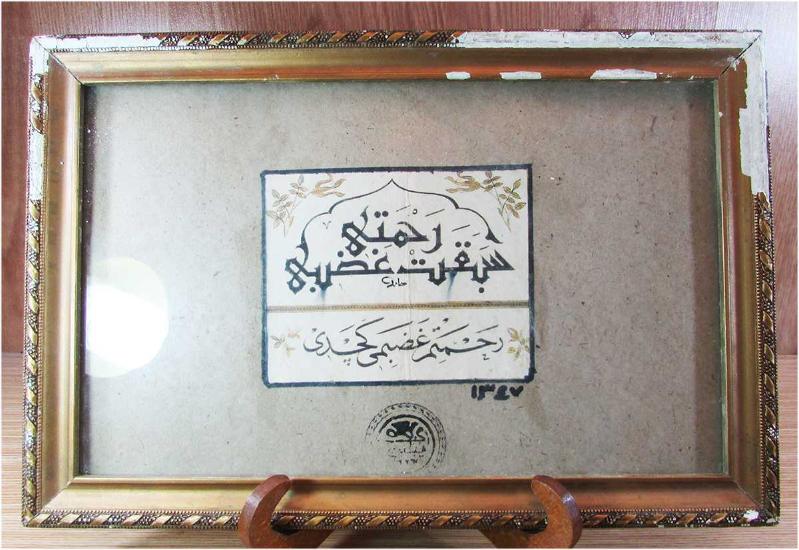 رَحْمَتِي
سَبَقَت غضبي
حامد
رَحْمَتِم غَضَبِمِى كَچدى
١٣٤٧